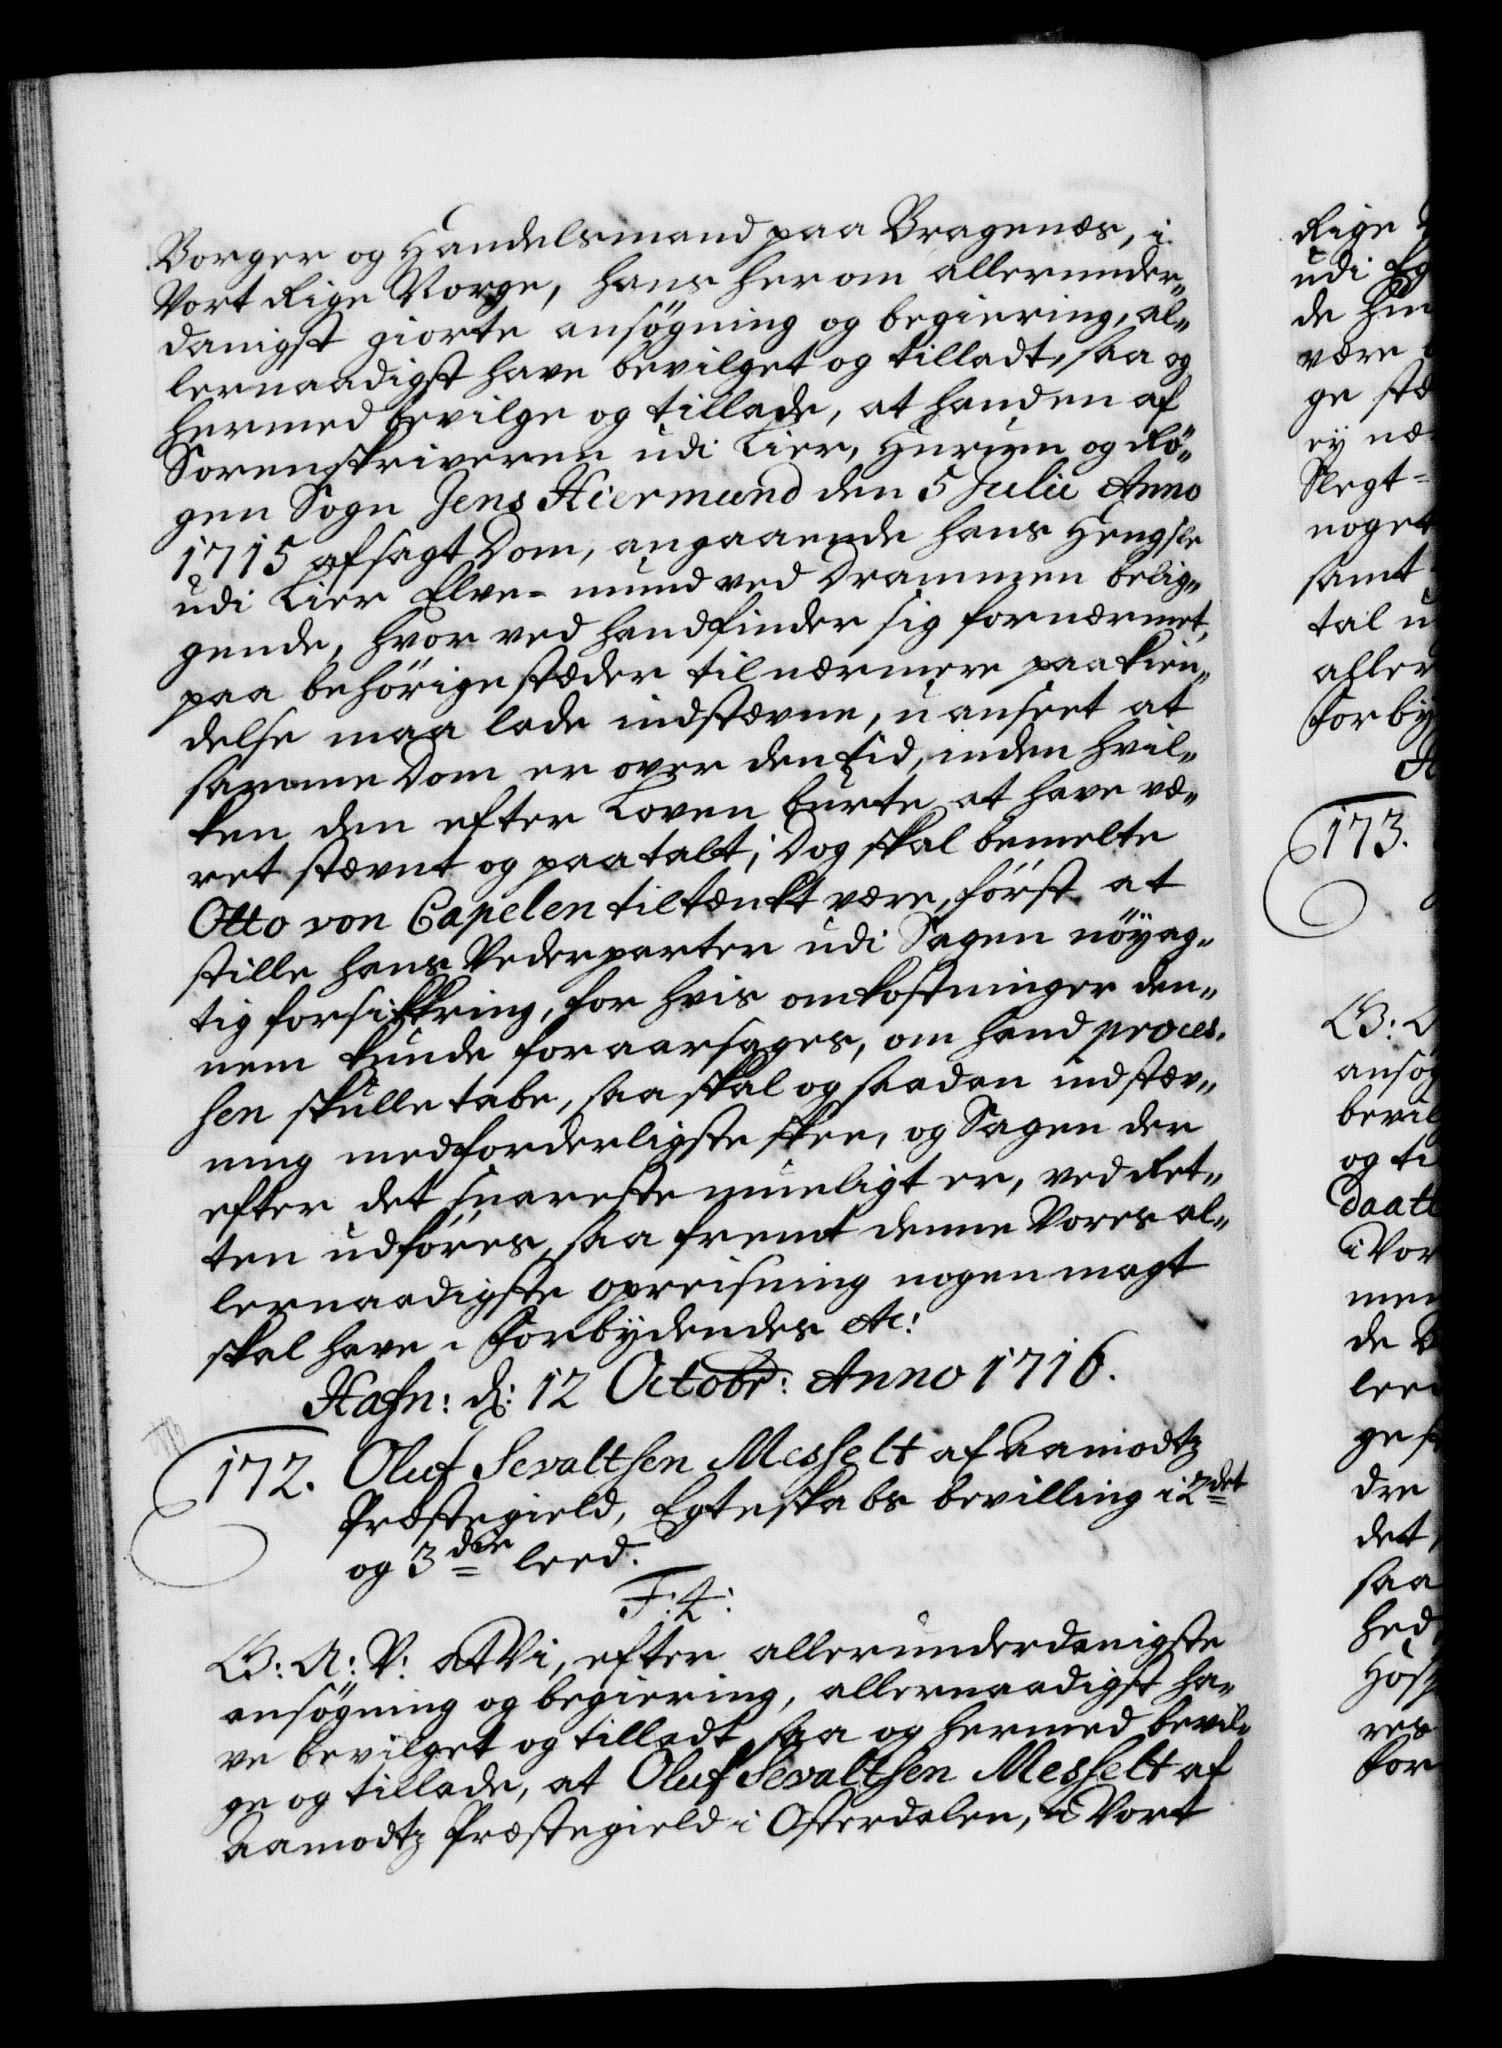 Borger og Handelsmand paa Bragenæs, i
Vort Rige Norge, hans herom allerunder„
danigst giorte ansøgning og begiering, al„
lernaadigst have bevilget og tilladt, saa og
hermed bevilge og tillade, at hand en af
Sorenskriveren udi Lier, Hurum og Rö„
gen Sogn Jens Hiermund den 5 Julii Anno
1715 afsagt Dom, angaaende hans Hengsle
udi Lier Elve-mund ved Drammen belig„
gende, hvor ved hand finder sig fornærmet,
paa behörige stæder til nærmere paakien„
delse maa lade indstævne, uanseet at
samme Dom er over den tid, inden hvil„
ken den efter Loven burte at have væ„
ret stævnt og paatalt; Dog skal bemelte
Otto von Capelen tiltænkt være, först at
stille hans Vederparter udi Sagen nöyag„
tig forsikkring, for hvis omkostninger den„
nem kunde foraarsages, om hand proces„
sen skulle tabe, saa skal og saadan indstæv„
ning medforderligste skee, og Sagen der
efter det snareste mueligt er, ved Ret„
ten udföres, saa fremt denne Vores al„
lernaadigste opreisning nogen magt
skal have. Forbydendes etc:
Hafn: d: 12 Octobr: Anno 1716.
172. Oluf Sevaltsen Messelt af Aamodtz
Præstegield, Egteskabs bevilling i 2det
og 3die leed.
F: 4:
G: A: V: at Vi, efter allerunderdanigste
ansögning og begiering, allernaadigst ha„
ve bevilget og tilladt, saa og hermed bevil„
ge og tillade, at Oluf Sevaltsen Messelt af
Aamodtz Præstegield i Osterdalen, i Vort
Rige
udi
de
være
ge
ey
Slegt-
noget
samt
tal
aller
Forby
173.
ansøg
bevil
og ti
daatt
i Vor
men
de
ge
dre
det
saa
hed
res
for